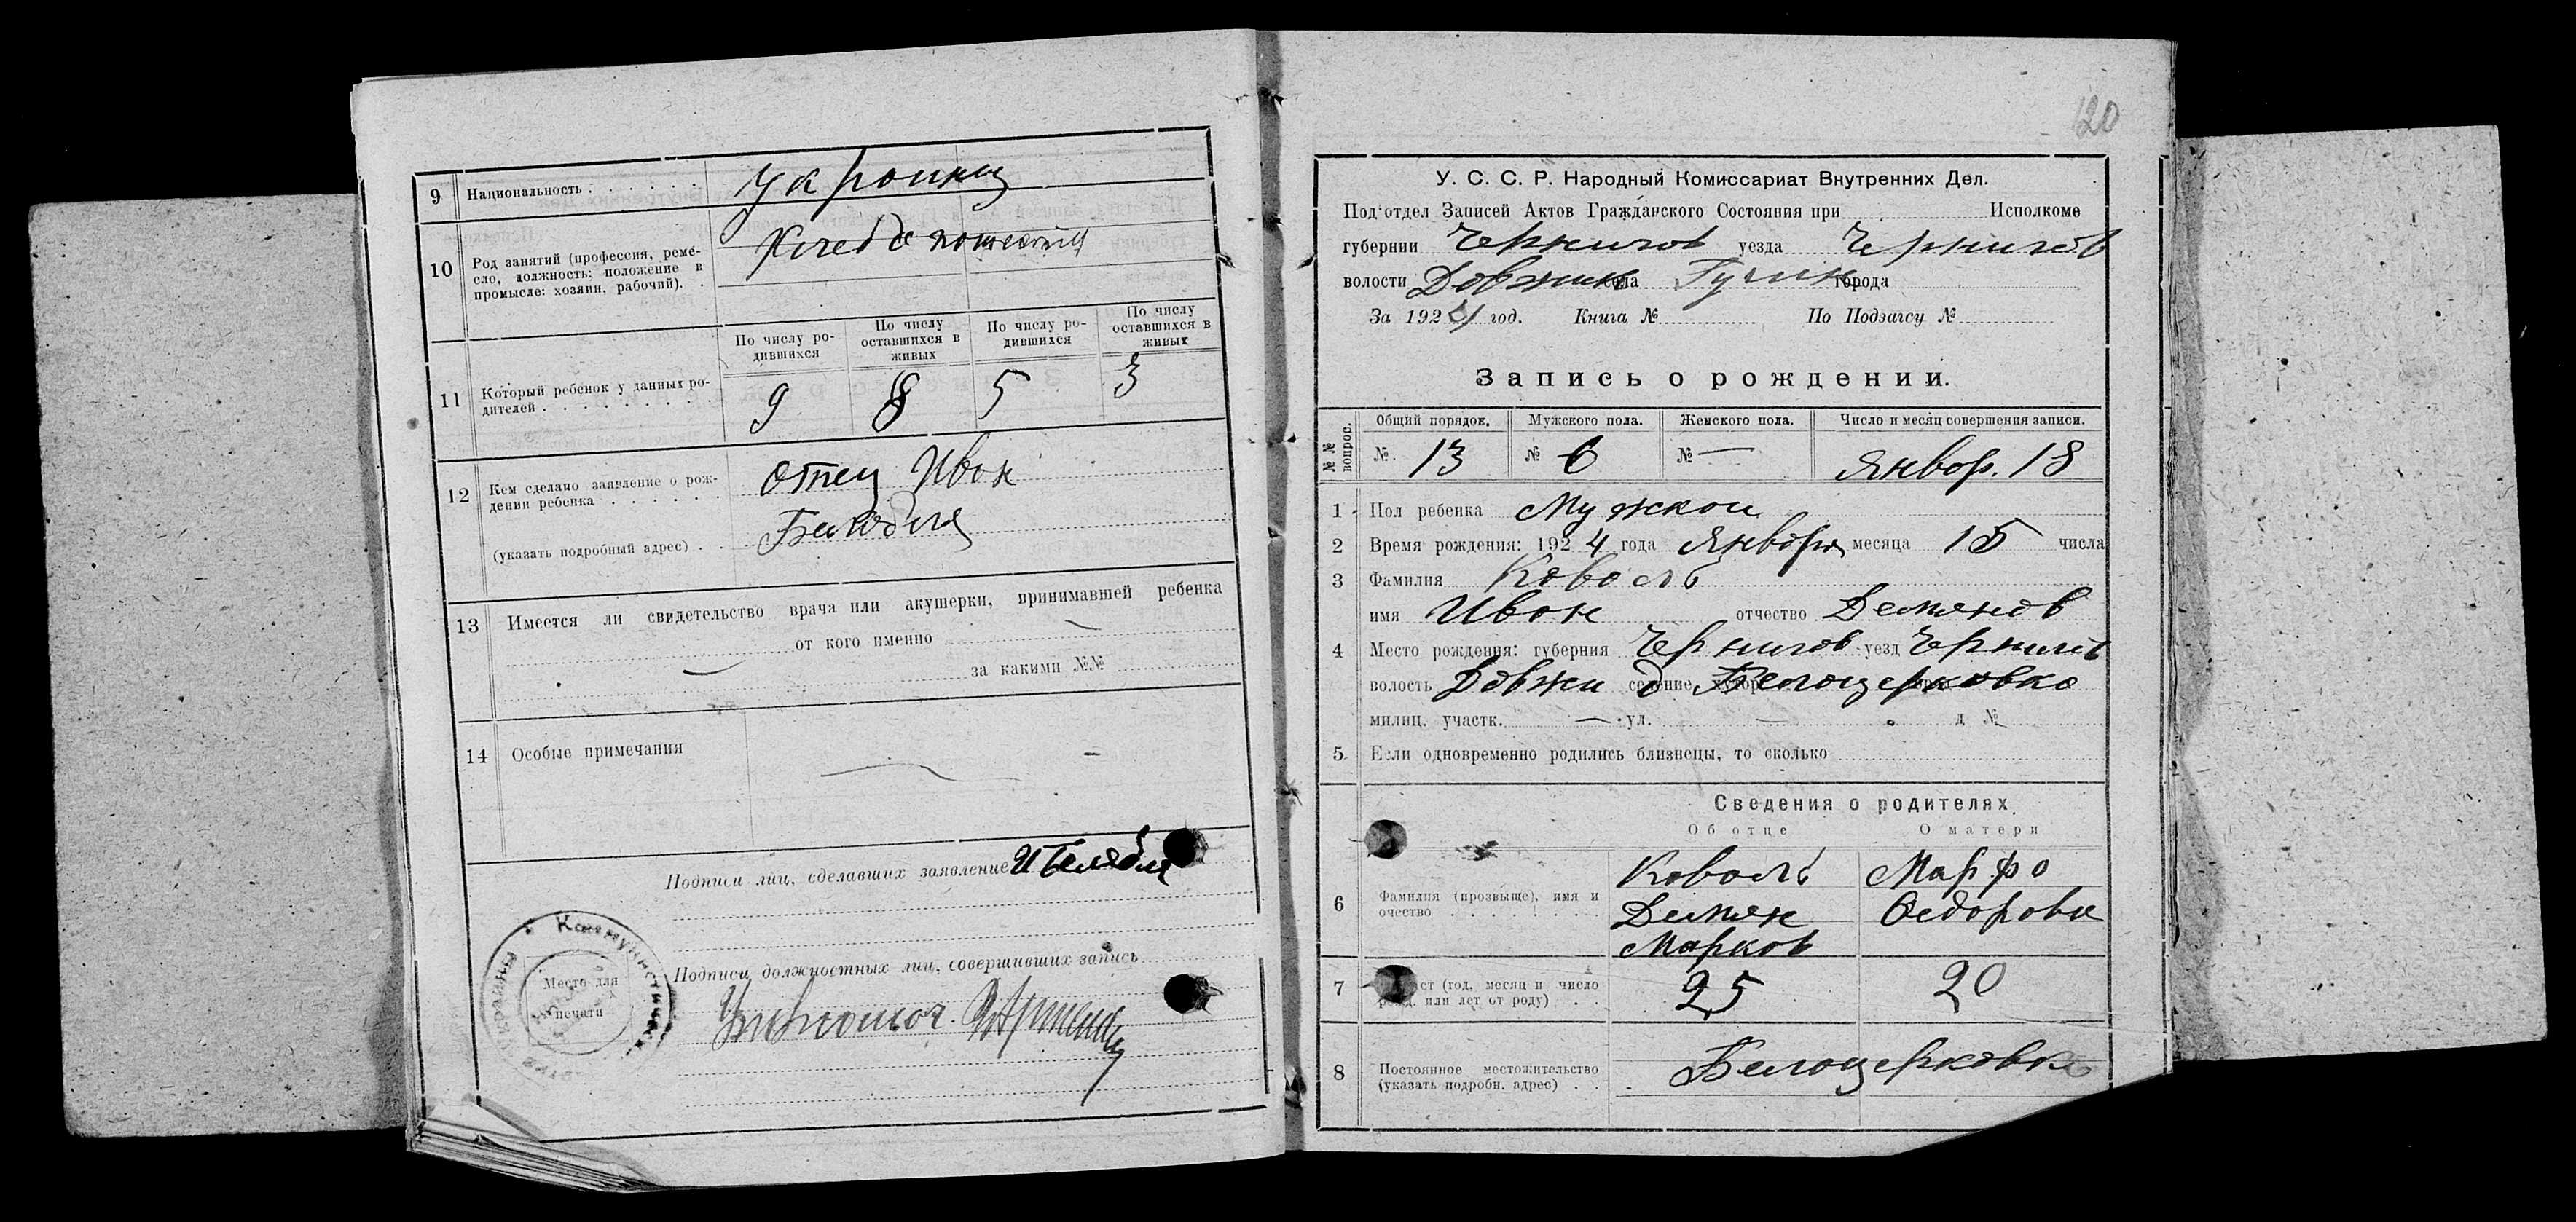 9 Национальность украинц
10 Род занятий (профессия, реме-
сло, должность; положение в
промысле: хозяин, рабочий).
Хлебопашеств
По числу ро-
дившихся
По числу
оставшихся в
живых
По числу ро-
дившихся
По числу
оставшихся в
живых
11 Который ребенок у данных ро-
дителей
9 8 5 3
12 Кем сделано заявление о рож-
дении ребенка отец Иван
(указать подробный адрес)
13 Имеется ли свидетельство врача или акушерки, принимавшей ребенка
от кого именно —
— за какими №№
14 Особые примечания — —
Подписи лиц, сделавших заявление
Подписи должностных лиц, совершивших запись
Место для
печати
120
У. С. С. Р. Народный Комиссариат Внутренних Дел.
Подотдел Записей Актов Гражданского Состояния при Исполкоме
губернии Чернигов уезда Чернигов
волости Довжик села Гучин города
За 1924 год. Книга № По Подзагсу №
Запись о рождении.
№№ вопрос.
Общий порядок. Мужского пола. Женского пола. Число и месяц совершения записи.
№ 13 № 6 № — Январ. 18
1 Пол ребенка Мужской
2 Время рождения: 1924 года Января месяца 15 числа
3 Фамилия Коваль
имя Иван отчество Демянов
4 Место рождения: губерния Чернигов уезд Чернигов
волость Довжи селение, хутор д Белоцерковка
милиц. участк. — ул. — д №
5 Если одновременно родились близнецы, то сколько
Сведения о родителях.
Об отце О матери
6 Фамилия (прозвыще), имя и
очество
Коваль Марфа
Демян Федорова
Марков
7 (год, месяц и число
или лет от роду) 25 20
8 Постоянное местожительство
(указать подробн. адрес) Белоцерковка